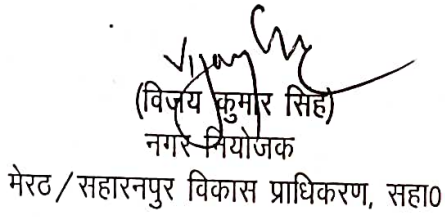 Vijay
(विजय कुमार सिंह)
नगर नियोजक
मेरठ / सहारनपुर विकास प्राधिकरण, सहा0